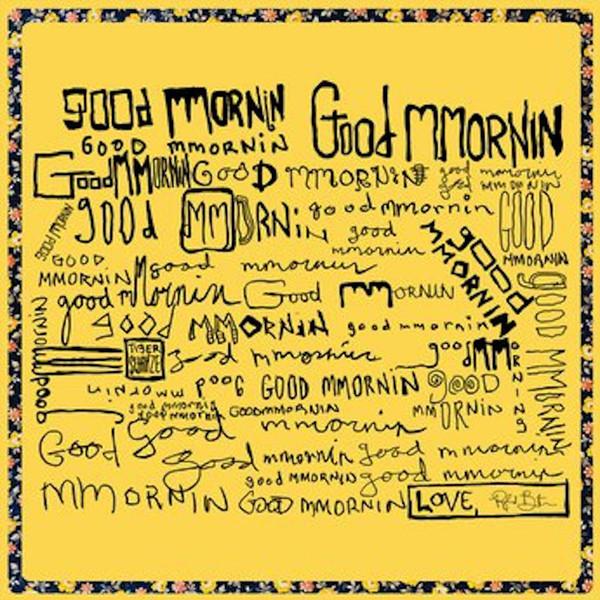 good mmornin Good mmornin
GOOD mmornin
Good MMORNIN GOOD MMORNIN good mmornin
good mmornin
good MMORNIN good mmornin GOOD MMORNIN
good mmornin
good mmornin
good MMORNIN
GOOD MMORNIN good mmornin
good mmornin Good MMORNIN
good MMORNIN good mmornin good MMORNIN
TIGER good mmornin
good mmornin GOOD MMORNIN good MMORNIN
good mmornin
good mmornin GOODMMORNIN
Good good mmornin
good mmornin good mmornin
good MMORNIN good mmornin
MMORNIN GOOD MMORNIN LOVE,